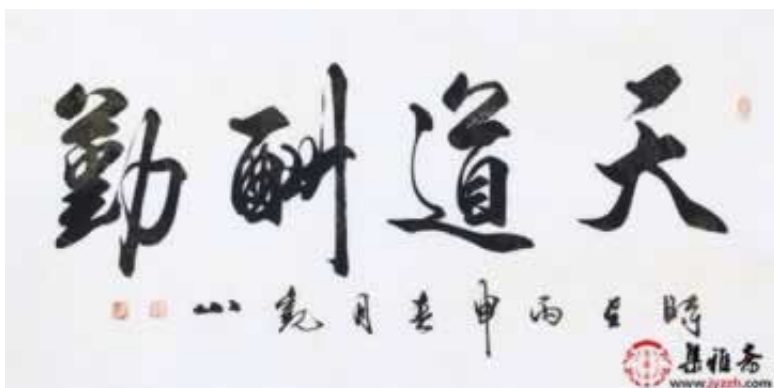 天道酬勤
時在丙申春月觀山
集雅斋
www.jyzzh.com